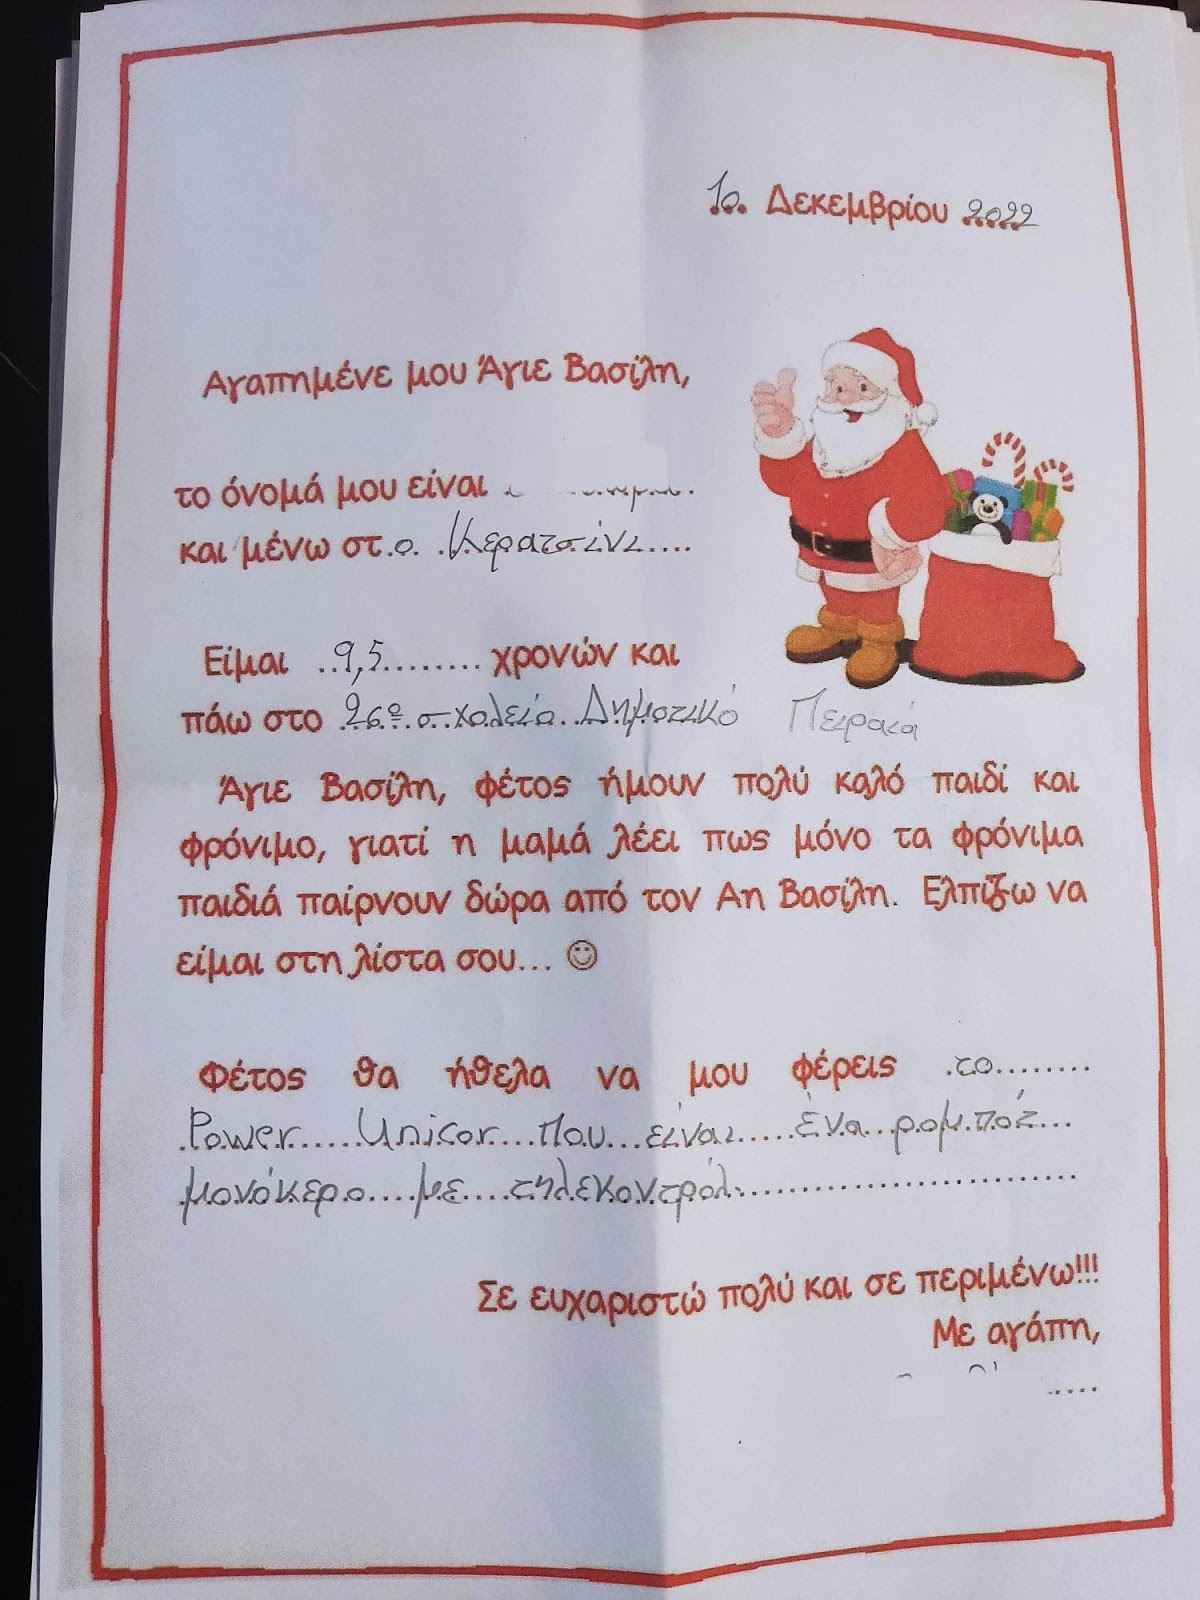 10 Δεκεμβρίου 2022
Αγαπημένε μου Άγιε Βασίλη,
το όνομά μου είναι
και μένω στ.ο. Κερατσίνι....
Είμαι ..9,5........ χρονών και
πάω στο 26ο σχολείο Δημοτικό Πειραιά
Άγιε Βασίλη, φέτος ήμουν πολύ καλό παιδί και
φρόνιμο, γιατί η μαμά λέει πως μόνο τα φρόνιμα
παιδιά παίρνουν δώρα από τον Αη Βασίλη. Ελπίζω να
είμαι στη λίστα σου... ☺
Φέτος θα ήθελα να μου φέρεις .το........
Power Unicor που είναι ένα ρομπότ
μονόκερο με τηλεκοντρόλ
Σε ευχαριστώ πολύ και σε περιμένω!!!
Με αγάπη,